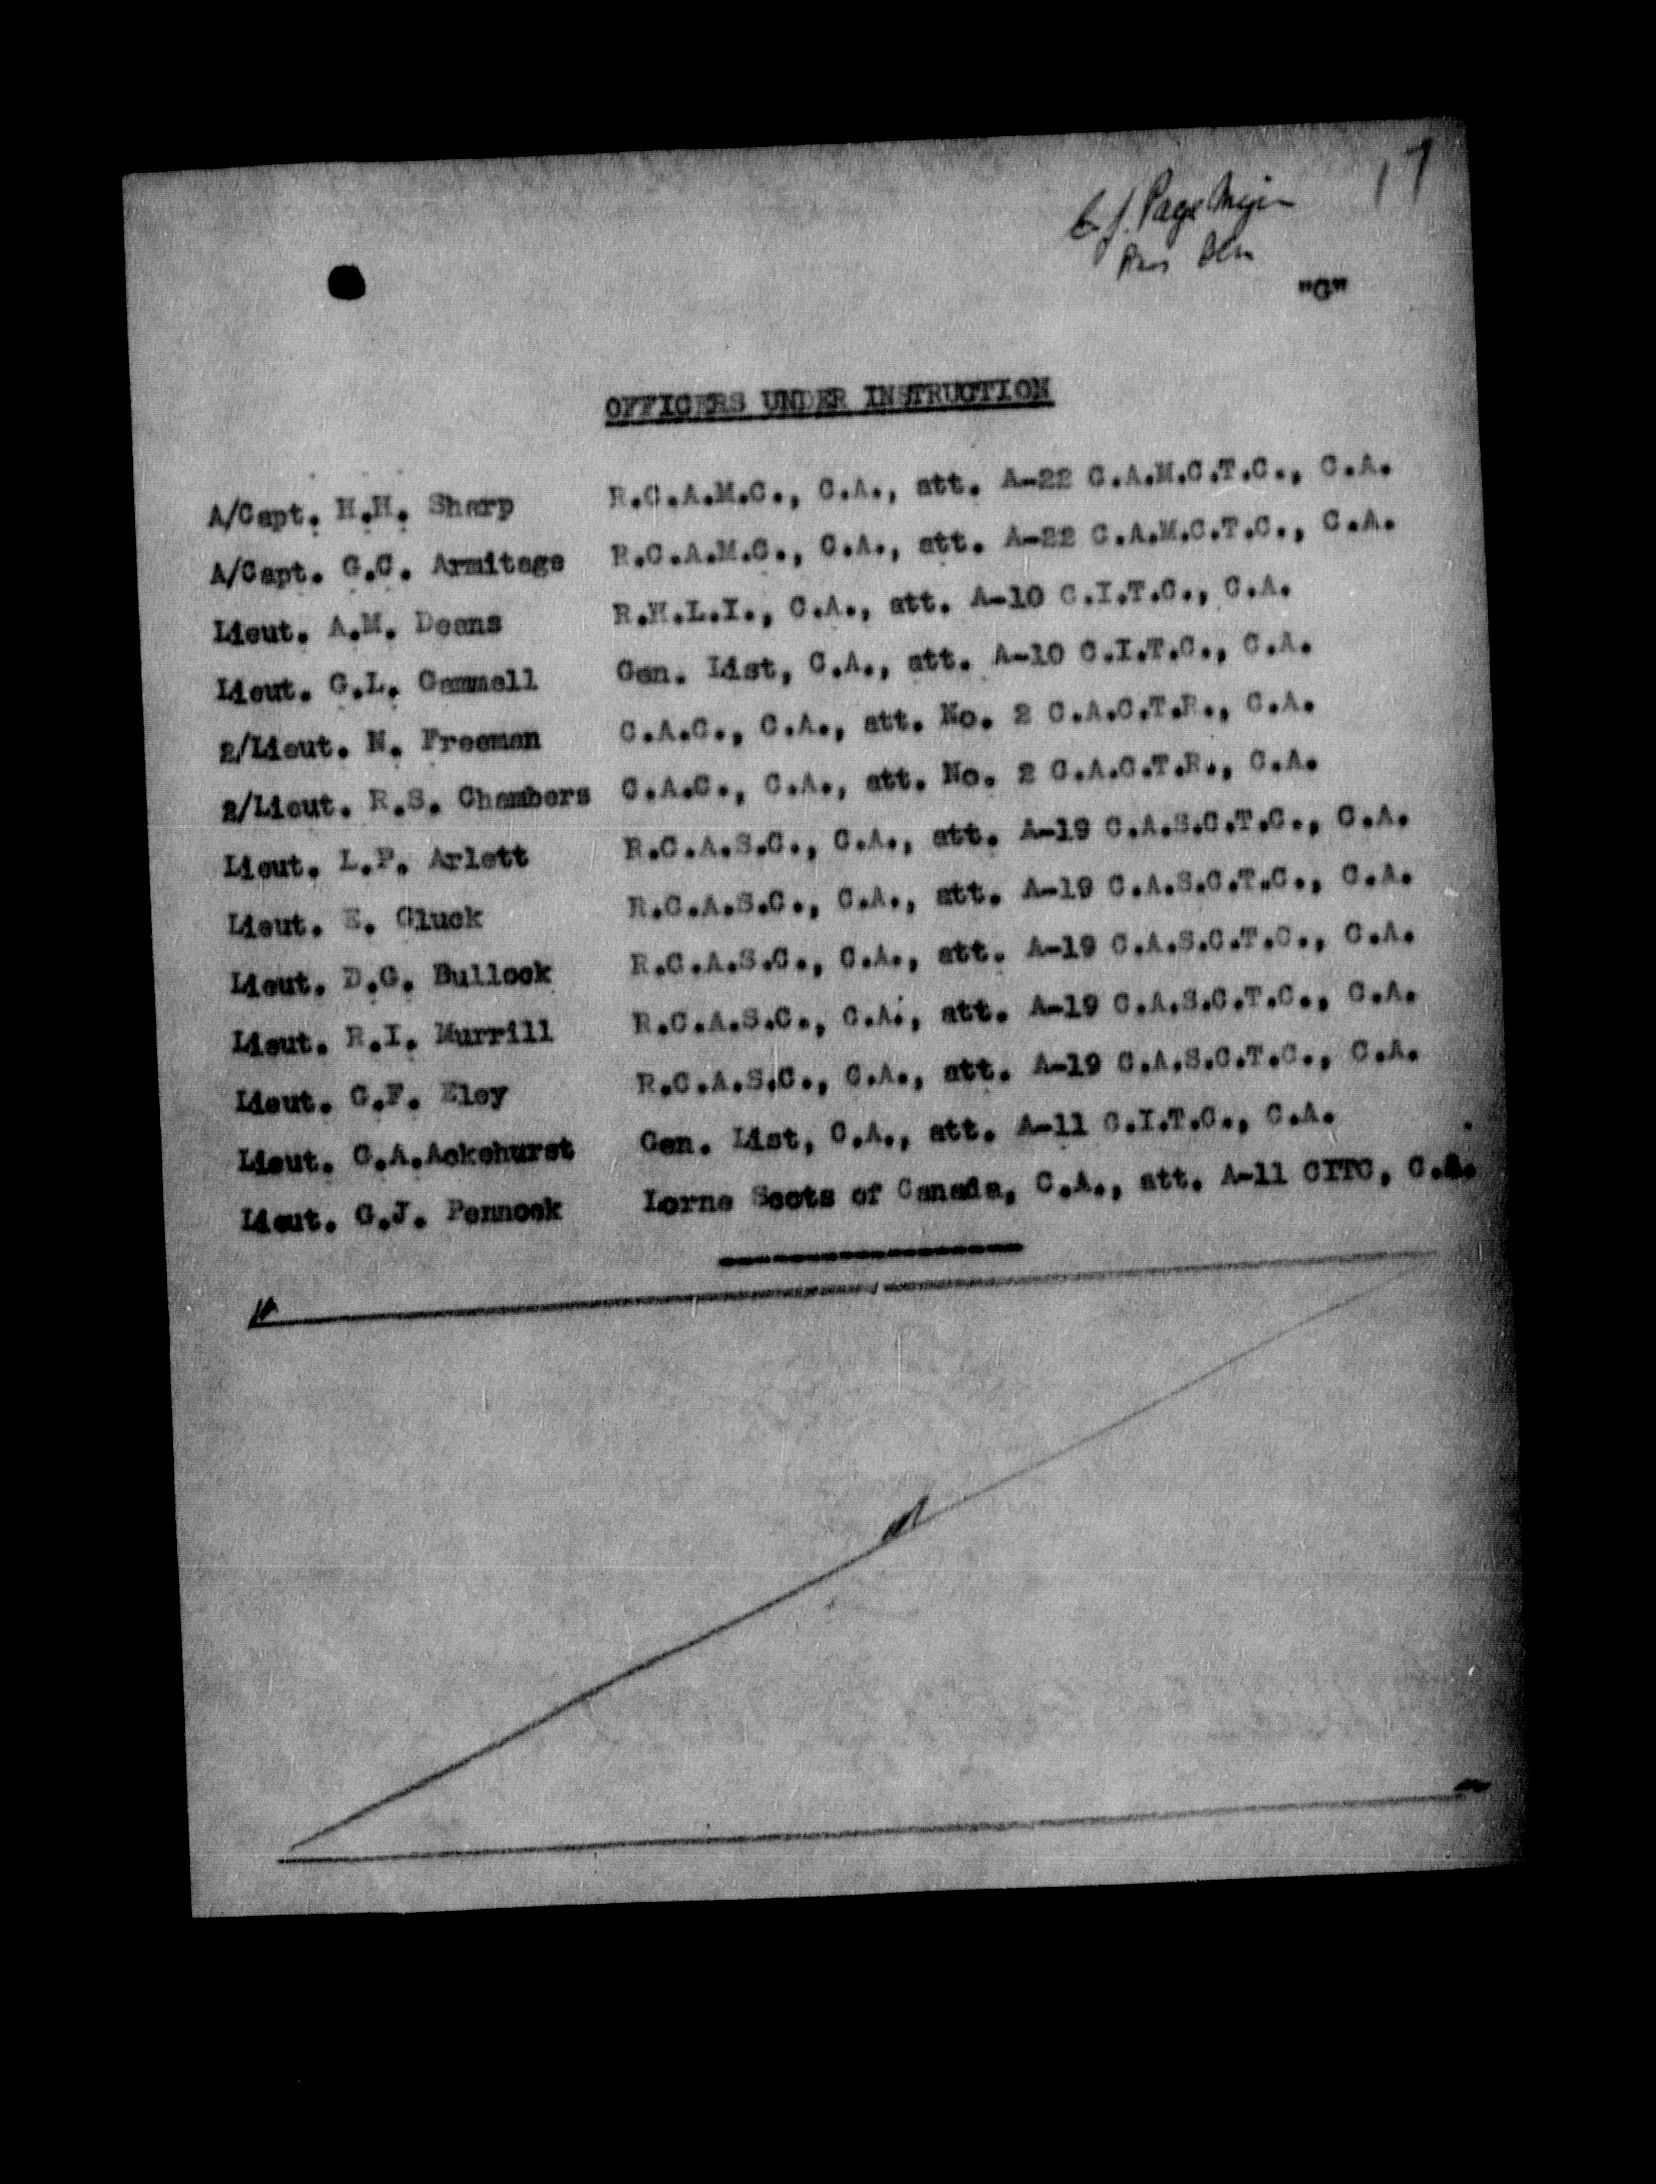 17
Page Major
"G"
OFFICERS UNDER INSTRUCTION
A/Capt. H.H. Sharp R.C.A.M.C., C.A., att. A-22 C.A.M.C.T.C., C.A.
A/Capt. G.C. Armitage R.C.A.M.C., C.A., att. A-22 C.A.M.C.T.C., C.A.
Lieut. A.M. Deans R.H.L.I., C.A., att. A-10 C.I.T.C., C.A.
Lieut. G.L. Gammell Gen. List, C.A., att. A-10 C.I.T.C., C.A.
2/Lieut. N. Freeman C.A.C., C.A., att. No. 2 C.A.C.T.R., C.A.
2/Lieut. R.S. Chambers C.A.C., C.A., att. No. 2 C.A.C.T.R., C.A.
Lieut. L.P. Arlett R.C.A.S.C., C.A., att. A-19 C.A.S.C.T.C., C.A.
Lieut. E. Gluck R.C.A.S.C., C.A., att. A-19 C.A.S.C.T.C., C.A.
Lieut. D.G. Bullock R.C.A.S.C., C.A., att. A-19 C.A.S.C.T.C., C.A.
Lieut. R.I. Murrill R.C.A.S.C., C.A., att. A-19 C.A.S.C.T.C., C.A.
Lieut. G.F. Eley R.C.A.S.C., C.A., att. A-19 C.A.S.C.T.C., C.A.
Lieut. G.A.Ackehurst Gen. List, C.A., att. A-11 C.I.T.C., C.A.
Lieut. G.J. Pennock Lorne Scots of Canada, C.A., att. A-11 CITC, C.A.